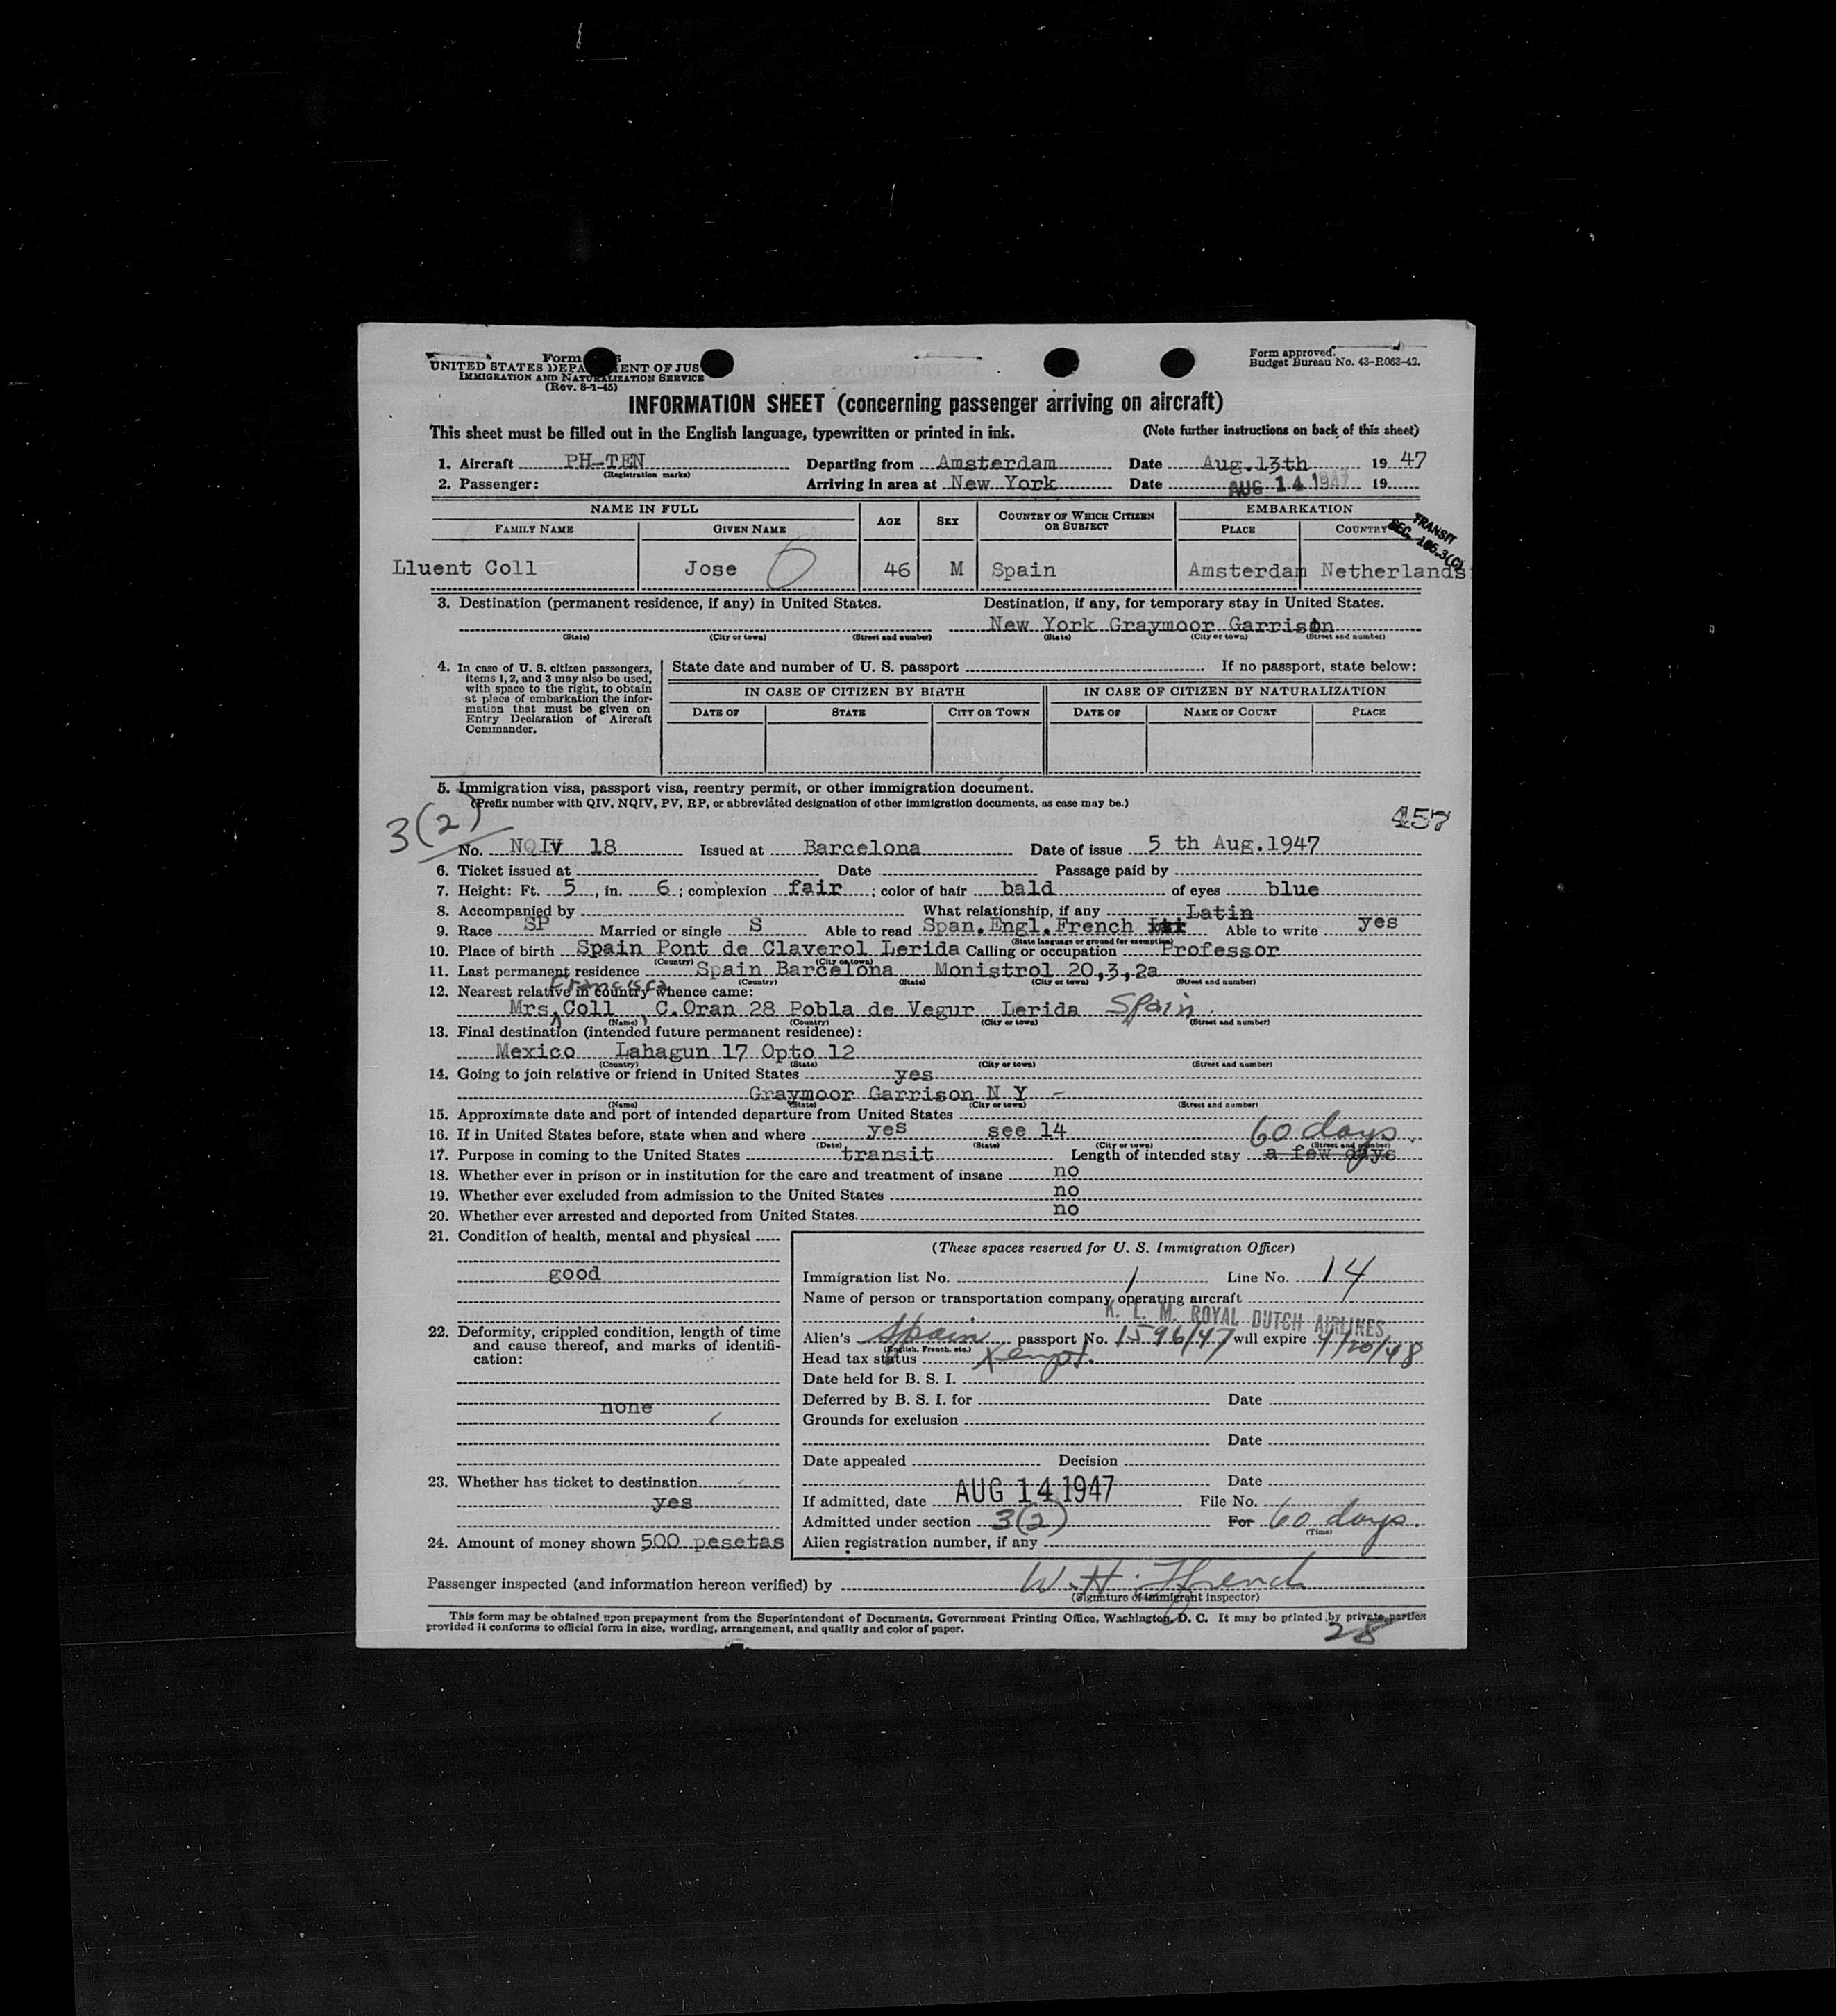 Form
UNITED STATES DEPA MENT OF JUS
IMMIGRATION AND NATURALIZATION SERVICE
(Rev. 8-1-45)
Form approved.
Budget Bureau No. 43-R063-42.
INFORMATION SHEET (concerning passenger arriving on aircraft)
This sheet must be filled out in the English language, typewritten or printed in ink. (Note further instructions on back of this sheet)
1. Aircraft PH-TEN Departing from Amsterdam Date Aug.13th 19 47
(Registration marks)
2. Passenger: Arriving in area at New York Date AUG 14 1947 19
NAME IN FULL AGE SEX COUNTRY OF WHICH CITIZEN OR SUBJECT EMBARKATION
FAMILY NAME GIVEN NAME PLACE COUNTRY
TRANSIT
SEC. 186.3(C)
Lluent Coll Jose 46 M Spain Amsterdam Netherlands
3. Destination (permanent residence, if any) in United States. Destination, if any, for temporary stay in United States.
New York Graymoor Garrison
(State) (City or town) (Street and number) (State) (City or town) (Street and number)
4. In case of U. S. citizen passengers, items 1, 2, and 3 may also be used, with space to the right, to obtain at place of embarkation the information that must be given on Entry Declaration of Aircraft Commander.
State date and number of U. S. passport If no passport, state below:
IN CASE OF CITIZEN BY BIRTH IN CASE OF CITIZEN BY NATURALIZATION
DATE OF STATE CITY OR TOWN DATE OF NAME OF COURT PLACE
5. Immigration visa, passport visa, reentry permit, or other immigration document.
(Prefix number with QIV, NQIV, PV, RP, or abbreviated designation of other immigration documents, as case may be.)
3(2)
457
No. NQIV 18 Issued at Barcelona Date of issue 5 th Aug.1947
6. Ticket issued at Date Passage paid by
7. Height: Ft. 5, in. 6; complexion fair; color of hair bald of eyes blue
8. Accompanied by What relationship, if any
Latin
9. Race SP Married or single S Able to read Span.Engl.French Able to write yes
(State language or ground for exemption)
10. Place of birth Spain Pont de Claverol Lerida Calling or occupation Professor
(Country) (City or town)
11. Last permanent residence Spain Barcelona Monistrol 20,3,2a
(Country) (State) (City or town) (Street and number)
12. Nearest relative in country whence came:
Francisca
Mrs. Coll C.Oran 28 Pobla de Vegur Lerida Spain
(Name) (Country) (City or town) (Street and number)
13. Final destination (intended future permanent residence):
Mexico Lahagun 17 Opto 12
(Country) (State) (City or town) (Street and number)
14. Going to join relative or friend in United States yes
Graymoor Garrison N Y -
(Name) (State) (City or town) (Street and number)
15. Approximate date and port of intended departure from United States
16. If in United States before, state when and where yes see 14 60 days.
(Date) (State) (City or town) (Street and number)
17. Purpose in coming to the United States transit Length of intended stay a few days
18. Whether ever in prison or in institution for the care and treatment of insane no
19. Whether ever excluded from admission to the United States no
20. Whether ever arrested and deported from United States. no
21. Condition of health, mental and physical
good
22. Deformity, crippled condition, length of time and cause thereof, and marks of identification:
none
23. Whether has ticket to destination
yes
24. Amount of money shown 500 pesetas
(These spaces reserved for U. S. Immigration Officer)
Immigration list No. 1 Line No. 14
Name of person or transportation company operating aircraft
K. L. M. ROYAL DUTCH AIRLINES
Alien's Spain passport No. 1596/47 will expire 4/20/48
(English, French, etc.)
Head tax status Xempt.
Date held for B. S. I.
Deferred by B. S. I. for Date
Grounds for exclusion
Date
Date appealed Decision
Date
If admitted, date AUG 14 1947 File No.
Admitted under section 3(2) For 60 days.
(Time)
Alien registration number, if any
Passenger inspected (and information hereon verified) by W. H. Ffrench
(Signature of immigrant inspector)
This form may be obtained upon prepayment from the Superintendent of Documents, Government Printing Office, Washington, D. C. It may be printed by private parties
provided it conforms to official form in size, wording, arrangement, and quality and color of paper.
28